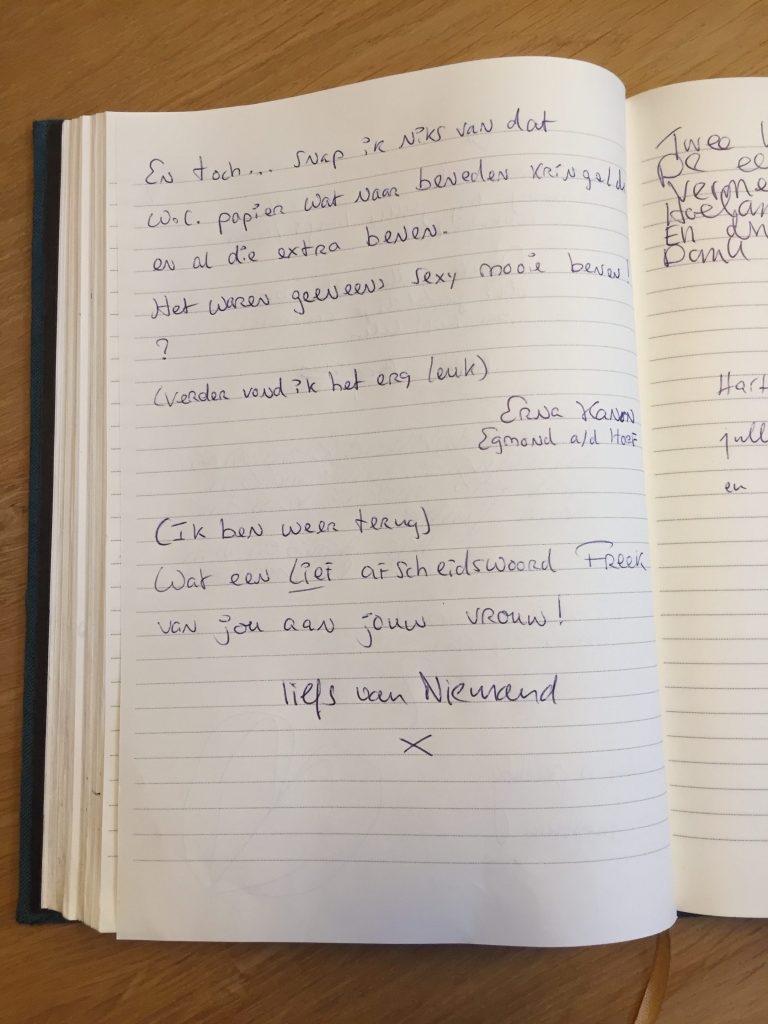 En toch... snap ik niks van dat
W.C. papier wat naar beneden kringelde
en al die extra benen.
Het waren geeneens sexy mooie benen!
?
(verder vond ik het erg leuk)
Erna Kanon
Egmond a/d Hoef
(Ik ben weer terug)
Wat een Lief afscheidswoord Freek
van jou aan jouw vrouw!
liefs van Niemand
X
Twee
De ee
Verme
En
Hart
jull
en